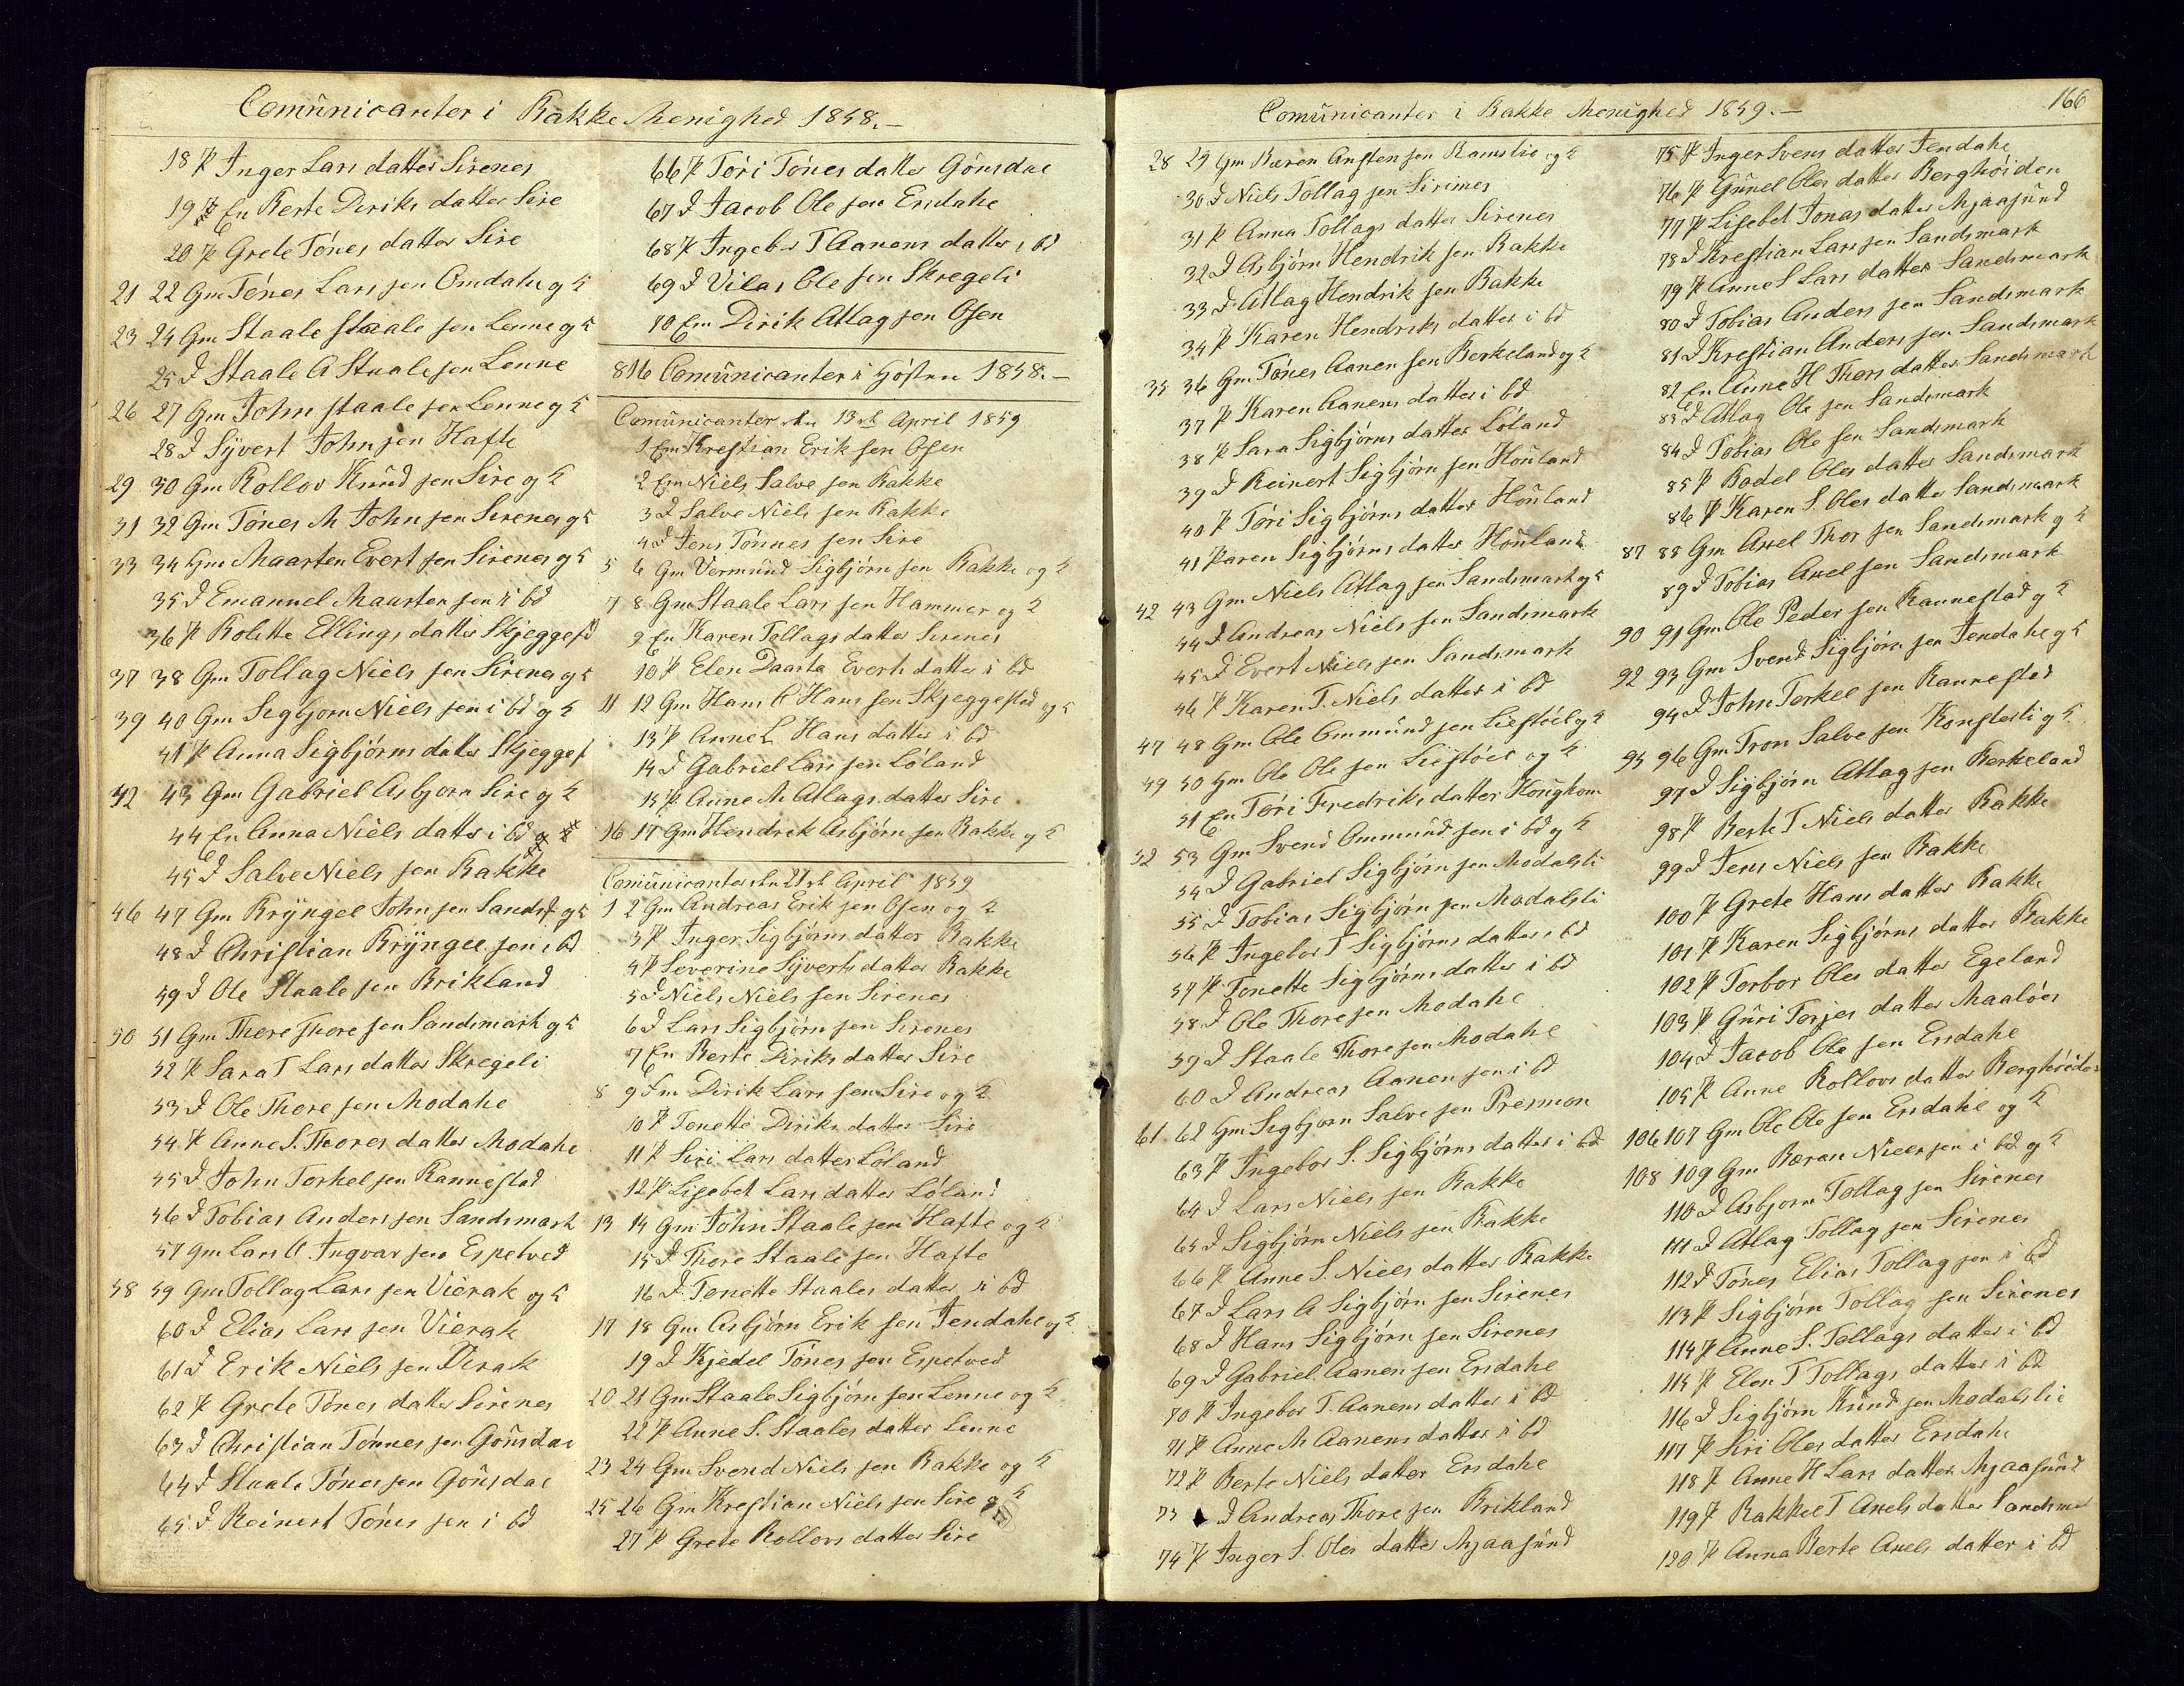 Comūnicanter i Bakke Menighed 1858.—
18 P Inger Lars datter Sirenes
19 En Berte Diriks datter Sire
20 P Grete Tónes datter Sire
21 22 Gm Tónes Lars sen Omdahl og H
23 24 Gm Staale Staale sen Lenne og H
25 D Staale A Staale sen Lenne
26 27 Gm John Staale sen Lenne og H
28 D Syvert John sen Hafte
29 30 Gm Rollov Knūd sen Sire og H
31 32 Gm Tónes M John sen Sirenes og H
33 34 Gm Maarten Evert sen Sirenes og H
35 D Emanuel Maarten sen i bd
36 P Rolette Ellings datter Skjeggesd
37 38 Gm Tollag Niels sen Sirenes og H
39 40 Gm Sigbjorn Niels sen i bd og H
41 P Anna Sigbjórns datter Skjegges
42 43 Gm Gabriel Asbjorn Sire og H
44 En Anna Niels datter i bd
45 D Salve Niels sen Bakke
46 47 Gm Kryngel John sen Sandsd og H
48 D Christian Kryngel sen i bd
49 D Ole Staale sen Brikland
50 51 Gm Thore Thore sen Sandsmark og H
52 P Sara T Lars datter Skregeli
53 D Ole Thore sen Modahl
54 P Anne S. Thores datter Modahl
55 D John Torkel sen Rannestad
56 D Tobias Anders sen Sandsmark
57 Gm Lars A. Ingvar sen Espetved
58 59 Gm Tollag Lars sen Vierak og H
60 D Elias Lars sen Vierak
61 D Erik Niels sen Virak
62 P Grete Tónes datter Sirenes
63 D Christian Tónnes sen Gónsdal
64 D Staale Tónes sen Gónsdal
65 D Reinert Tónes sen i bd
66 P Tóri Tónes datter Gónsdal
67 D Jacob Ole sen Ersdahl
68 P Ingebor T Aanens datter i bd
69 D Vilas Ole sen Skregeli
70 Em Dirik Atlag sen Osen
816 Comūnicanter i Hósten 1858.—
Comūnicanter den 13de April 1859
1 Em Krestian Erik sen Osen
2 Em Niels Salve sen Bakke
3 D Salve Niels sen Bakke
4 D Jens Tónnes sen Sire
5 6 Gm Vermūnd Sigbjórn sen Bakke og H
7 8 Gm Staale Lars sen Hammer og H
9 En Karen Tollags datter Sirenes
10 P Elen Daarta Everts datter i bd
11 12 Gm Hans C Hans sen Skjeggestad og H
13 P Anne L Hans datter i bd
14 D Gabriel Lars sen Lóland
15 P Anne M Atlags datter Sire
16 17 Gm Hendrik Asbjórn sen Bakke og H
Comūnicanter den 21de April 1859
1 2 Gm Andreas Erik sen Osen og H
3 P Inger Sigbjórns datter Bakke
4 P Severine Syverts datter Bakke
5 D Niels Niels sen Sirenes
6 D Lars Sigbjórn sen Sirenes
7 En Berte Diriks datter Sire
8 9 Gm Dirik Lars sen Sire og H
10 P Tonette Diriks datter Sire
11 P Siri Lars datter Lóland
12 P Lisebet Lars datter Lóland
13 14 Gm John Staale sen Hafte og H
15 D Thore Staale sen Hafte
16 D Tonette Staales datter i bd
17 18 Gm Asbjórn Erik sen Jendahl og H
19 D Kjedel Tónes sen Espetved
20 21 Gm Staale Sigbjórn sen Lenne og H
22 P Anne S. Staales datter Lenne
23 24 Gm Svend Niels sen Bakke og H
25 26 Gm Krestian Niels sen Sire og H
27 P Grete Rollovs datter Sire
Comūnicanter i Bakke Menighed 1859.—
166
28 29 Gm Bæren Ansten sen Ramslie og H
30 D Niels Tollag sen Sirines
31 P Anna Tollags datter Sirenes
32 D Asbjórn Hendrik sen Bakke
33 D Atlag Hendrik sen Bakke
34 P Karen Hendriks datter i bd
35 36 Gm Tónes Aanen sen Berkeland og H
37 P Karen Aanens datter i bd
38 P Sara Sigbjórns datter Lóland
39 D Reinert Sigbjórn sen Hoūland
40 P Tóri Sigbjórns datter Hoūland
41 Karen Sigbjórns datter Hoūland
42 43 Gm Niels Atlag sen Sandsmark og H
44 D Andreas Niels sen Sandsmark
45 D Evert Niels sen Sandsmark
46 P Karen T. Niels datter i bd
47 48 Gm Ole Ommūnd sen Liestóel og H
49 50 Gm Ole Ole sen Liestóel og H
51 En Tóri Fredriks datter Hoūghom
52 53 Gm Svend Ommūnd sen i bd og H
54 D Gabriel Sigbjórn sen Modalsli
55 D Tobias Sigbjórn sen Modalsli
56 P Ingebor T Sigbjórns datter i bd
57 P Tonette Sigbjórns datter i bd
58 D Ole Thore sen Modahl
59 D Staale Thore sen Modahl
60 D Andreas Aanen sen i bd
61 62 Gm Sigbjorn Salve sen Presmon
63 P Ingebor S. Sigbjórns datter i bd
64 D Lars Niels sen Bakke
65 D Sigbjórn Niels sen Bakke
66 P Anne S. Niels datter Bakke
67 D Lars A Sigbjórn sen Sirenes
68 D Hans Sigbjórn sen Sirenes
69 D Gabriel Aanen sen Ersdahl
70 P Ingebor T. Aanens datter i bd
71 P Anne M Aanens datter i bd
72 P Berte Niels datter Ersdahl
73 D Andreas Thore sen Brikland
74 P Inger S. Oles datter Mjaasūnd
75 P Inger Svens datter Jendahl
76 P Gūnel Oles datter Berghóiden
77 P Lisebet Jonas datter Mjaasūnd
78 D Krestian Lars sen Sandsmark
79 P Anne S Lars datter Sandsmark
80 D Tobias Anders sen Sandsmark
81 D Krestian Anders sen Sandsmark
82 En Anne H Thors datter Sandsmark
83 D Atlag Ole sen Sandsmark
84 D Tobias Ole sen Sandsmark
85 P Bodel Oles datter Sandsmark
86 P Karen S. Oles datter Sandsmark
87 88 Gm Axel Thor sen Sandsmark og H
89 D Tobias Axel sen Sandsmark
90 91 Gm Ole Peder sen Rannestad og H
92 93 Gm Svend Sigbjórn sen Jendahl og H
94 D John Torkel sen Rannestad
95 96 Gm Tron Salve sen Konsterli og H
97 D Sigbjórn Atlag sen Berkeland
98 P Berte T Niels datter Bakke
99 D Jens Niels sen Bakke
100 P Grete Hans datter Bakke
101 P Karen Sigbjórns datter Bakke
102 P Torbor Oles datter Egeland
103 P Gūri Torjes datter Maalóes
104 D Jacob Ole sen Ersdahl
105 P Anne Rollovs datter Berghóiden
106 107 Gm Ole Ole sen Ersdahl og H
108 109 Gm Bæren Niels sen i bd og H
110 D Asbjorn Tollag sen Sirenes
111 D Atlag Tollag sen Sirenes
112 D Tónes Elias Tollag sen i bd
113 P Sigbjórn Tollag sen Sirenes
114 P Anne S. Tollags datter i bd
115 P Elen T Tollags datter i bd
116 D Sigbjórn Knūd sen Modalslie
117 P Siri Oles datter Ersdahl
118 P Anne H Lars datter Mjaasūnd
119 P Rakkel T Axels datter Sandsma
120 P Anna Berte Axels datter i bd